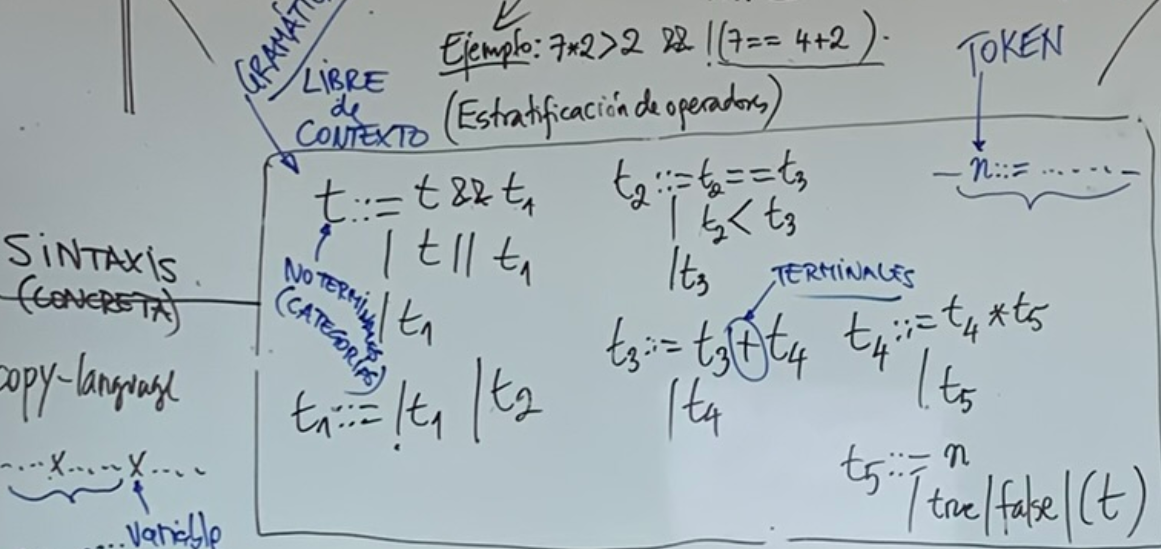 GRAMÁTI
LIBRE
de
CONTEXTO
Ejemplo: 7*2>2 && !(7== 4+2).
(Estratificación de operadores)
TOKEN
n::= ........
SINTAXIS
(CONCRETA)
copy-language
....x.....x....
variable
t::= t && t₁
| t || t₁
| t₁
NO TERMINALES
(CATEGORÍAS)
t₁::= !t₁ | t₂
t₂::= t₂==t₃
| t₂ < t₃
| t₃
TERMINALES
t₃::= t₃ + t₄
| t₄
t₄::= t₄ * t₅
| t₅
t₅::= n
| true | false | (t)